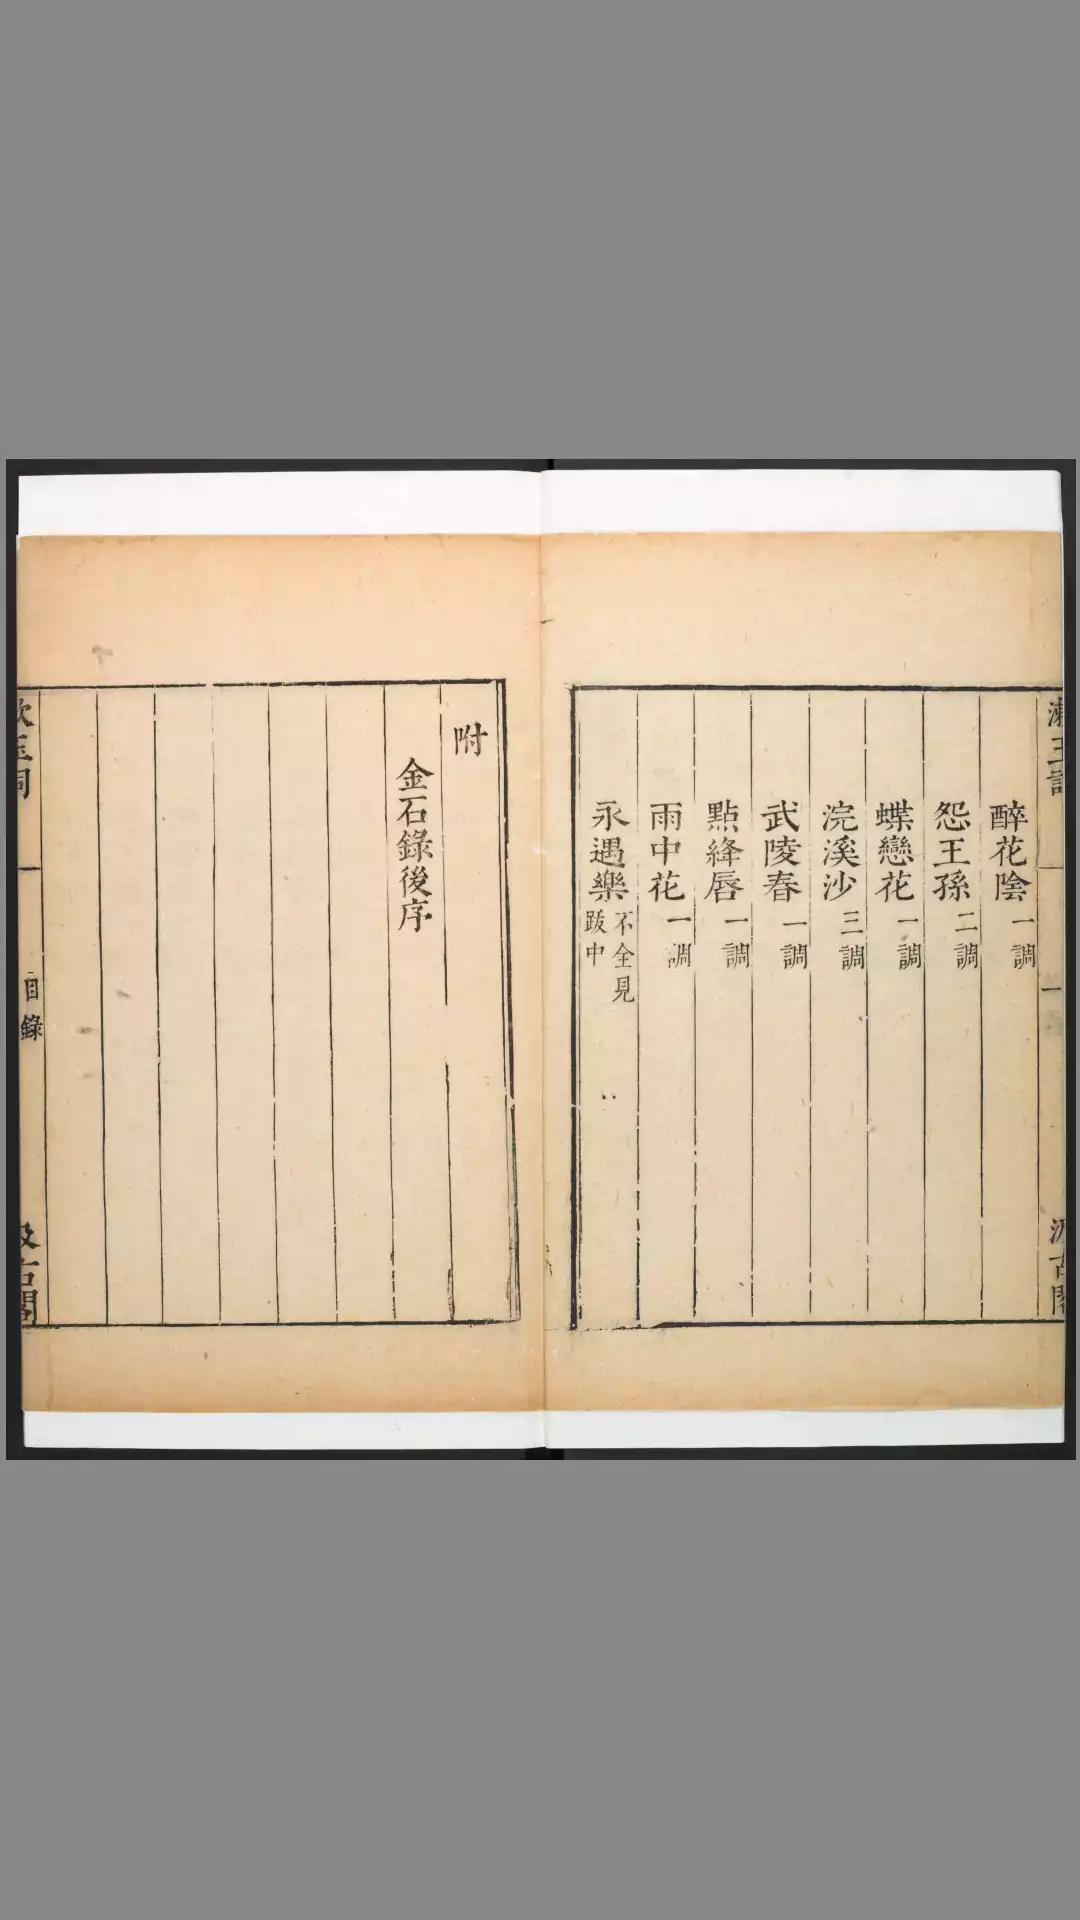 醉花陰一調
怨王孫二調
蝶戀花一調
浣溪沙三調
武陵春一調
點絳唇一調
雨中花一調
永遇樂不全見
跋中
附
金石錄後序
漱玉詞
一
目錄
汲古閣